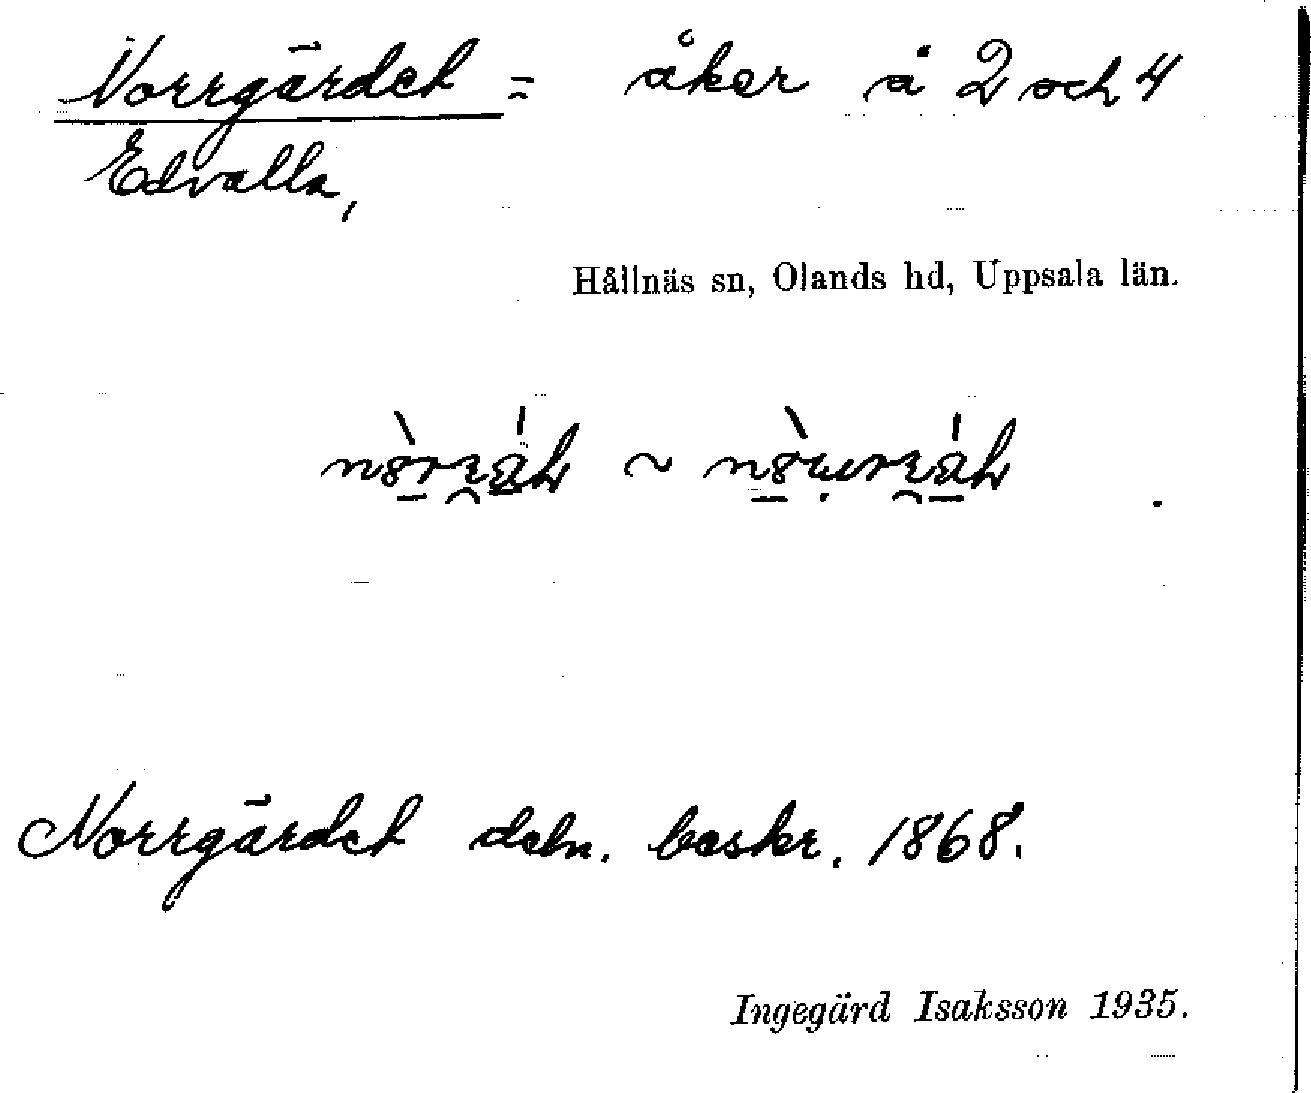 Norrgärdet = åker å 2 och 4
Edvalla,
Hållnäs sn, Olands hd, Uppsala län.
Norrgärdet debn. beskr. 1868.
Ingegärd Isaksson 1935.